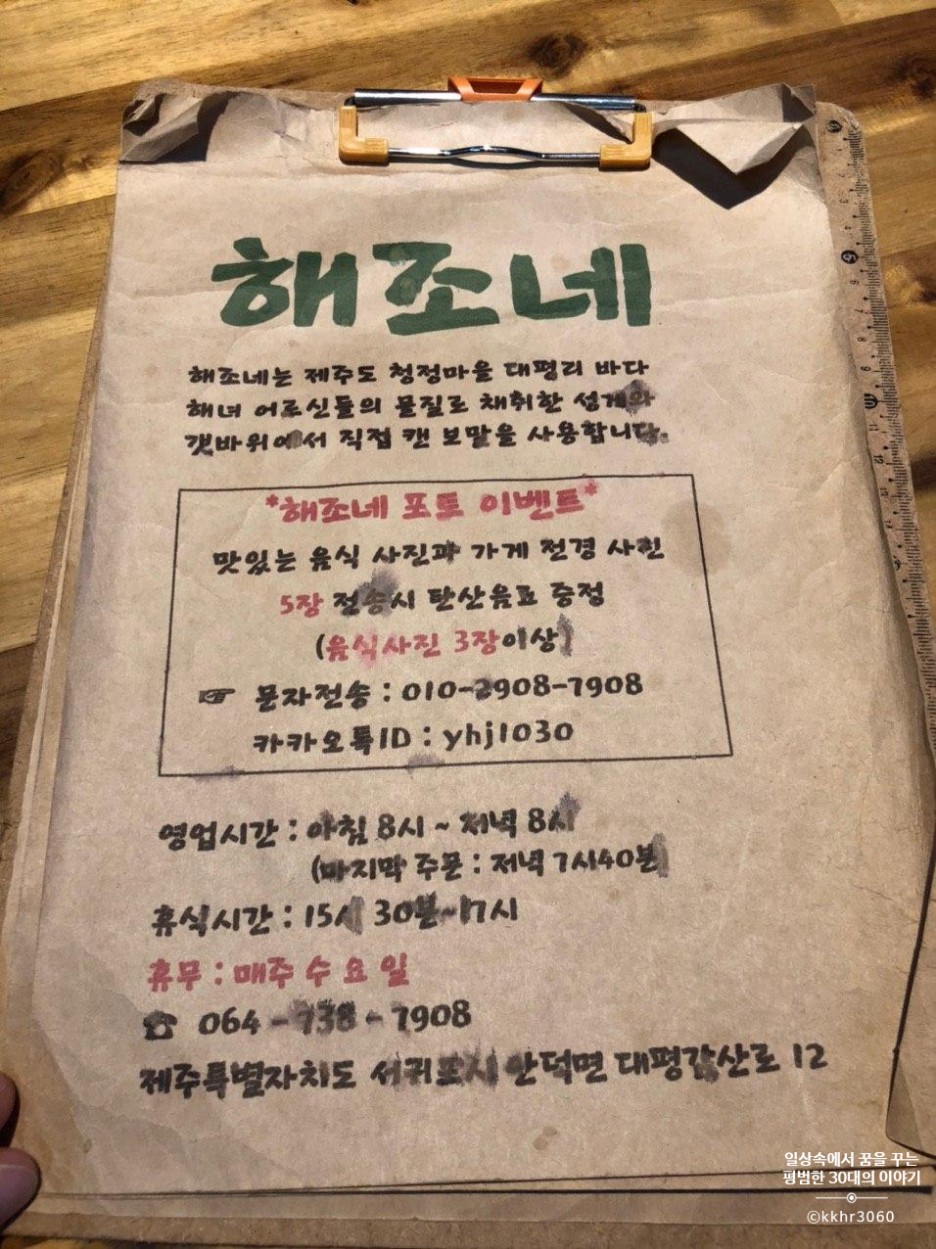 해조네
해조네는 제주도 청정마을 대평리 바다
해녀 어르신들의 물질로 채취한 성게와
갯바위에서 직접 캔 보말을 사용합니다.
*해조네 포토 이벤트*
맛있는 음식 사진과 가게 전경 사진
5장 전송시 탄산음료 증정
(음식사진 3장이상)
☞ 문자전송 : 010-2908-7908
카카오톡ID : yhj1030
영업시간 : 아침 8시 ~ 저녁 8시
(마지막 주문 : 저녁 7시40분)
휴식시간 : 15시 30분~17시
휴무 : 매주 수 요 일
☎ 064 - 738 - 7908
제주특별자치도 서귀포시 안덕면 대평감산로 12
일상속에서 꿈을 꾸는
평범한 30대의 이야기
©kkhr3060